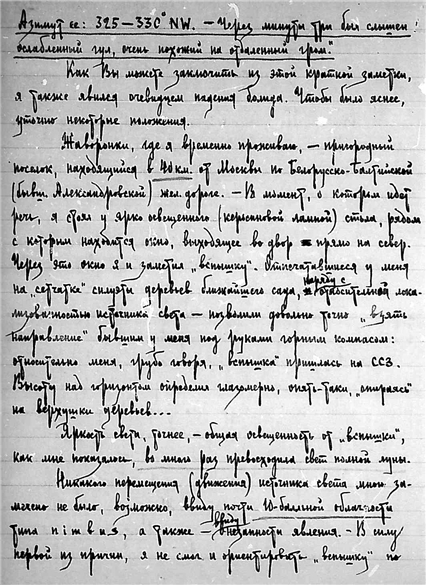 Азимут ее: 325–330° NW. – Через минуты три был слышен
ослабленный гул, очень похожий на отдаленный гром."
Как Вы можете заключить из этой краткой заметки,
я также явился очевидцем падения болида. Чтобы было яснее,
уточню некоторые положения.
Жаворонки, где я временно проживаю, – пригородный
поселок, находящийся в 40 км. от Москвы по Белорусско-Балтийской
(бывш. Александровской) жел. дороге. – В момент, о котором идет
речь, я стоял у ярко освещенного (керосиновой лампой) стола, рядом
с которым находится окно, выходящее во двор прямо на север.
Через это окно я и заметил „вспышку". Отпечатавшиеся у меня
на „сетчатке" силуэты деревьев ближайшего сада, наряду с относительной лока-
лизованностью источника света – позволили довольно точно „взять
направление" бывшим у меня под руками горным компасом:
относительно меня, грубо говоря, „вспышка" пришлась на ССЗ.
Высоту над горизонтом определил глазомерно, опять-таки, „опираясь"
на верхушки деревьев...
Яркость света, точнее, – общая освещенность от „вспышки",
как мне показалось, во много раз превосходила свет полной луны.
Никакого перемещения (движения) источника света мною за-
мечено не было, возможно, ввиду почти 10-балльной облачности
типа nimbus, а также – ввиду внезапности явления. – В силу
первой из причин, я не смог и ориентировать „вспышку" по